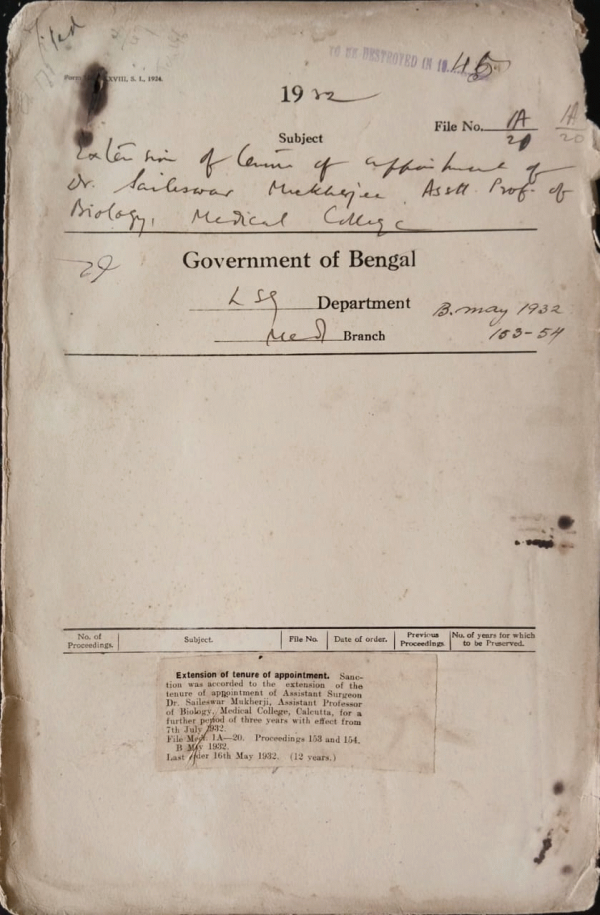 filed
TO BE DESTROYED IN 19 45
XXVIII, S. I., 1924.
1932
File No. 1A
20
1A
20
Subject
Extension of tenure of appointment of
Dr. Saileswar Mukherjee Asstt Prof. of
Biology, Medical College
Government of Bengal
LSG Department
B. May 1932
Med Branch
153-54
No. of Proceedings. Subject. File No. Date of order. Previous Proceedings. No. of years for which to be Preserved.
Extension of tenure of appointment. Sanc-
tion was accorded to the extension of the
tenure of appointment of Assistant Surgeon
Dr. Saileswar Mukherji, Assistant Professor
of Biology, Medical College, Calcutta, for a
further period of three years with effect from
7th July 1932.
File Med. 1A—20. Proceedings 153 and 154,
B May 1932.
Last order 16th May 1932. (12 years.)